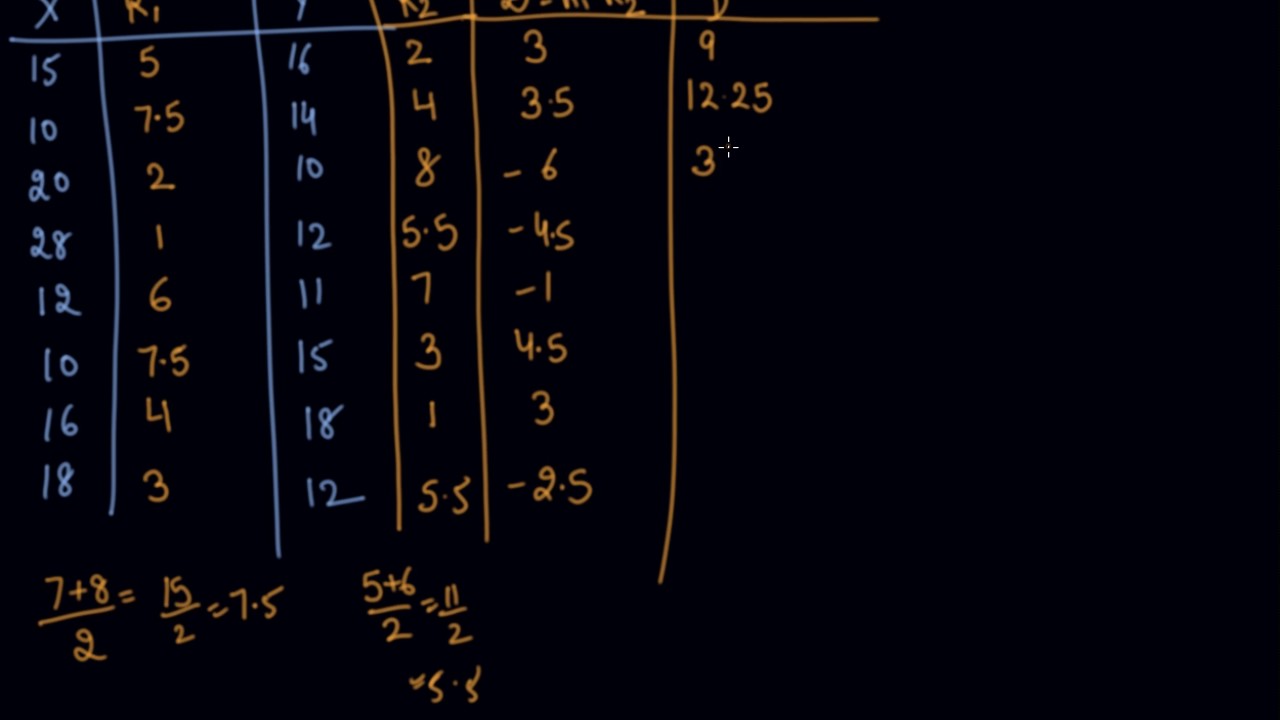 X R1 Y R2 D = R1 - R2 D
15 5 16 2 3 9
10 7.5 14 4 3.5 12.25
20 2 10 8 -6 3
28 1 12 5.5 -4.5
12 6 11 7 -1
10 7.5 15 3 4.5
16 4 18 1 3
18 3 12 5.5 -2.5
7+8/2 = 15/2 = 7.5 5+6/2 = 11/2
= 5.5